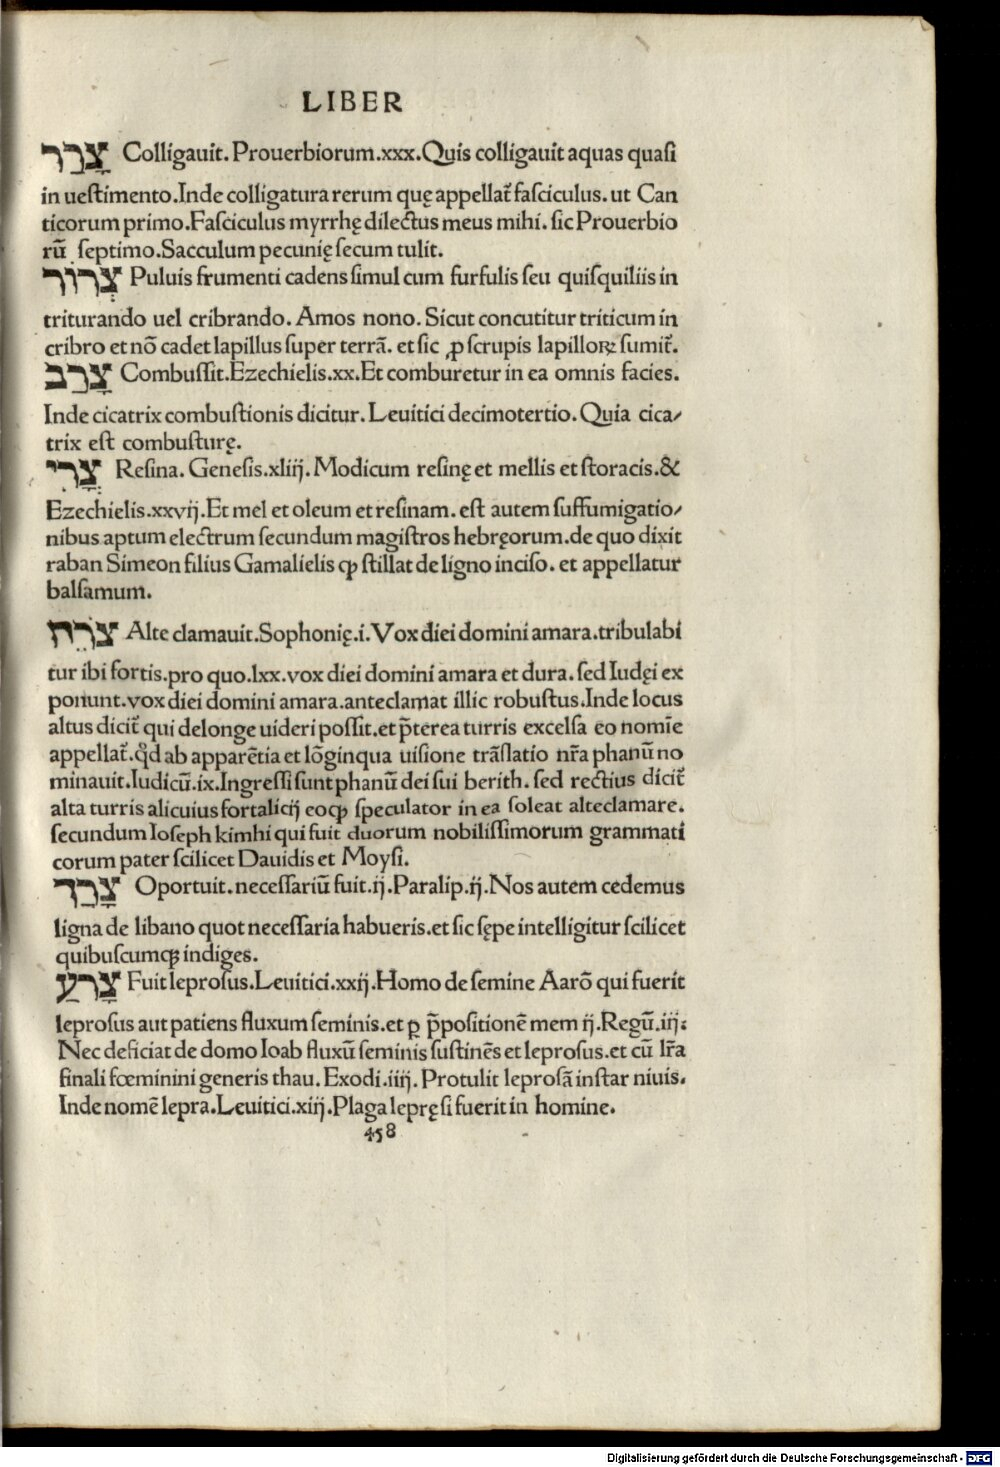 LIBER
צָרַר Colligauit. Prouerbiorum.xxx.Quis colligauit aquas quaſi
in ueſtimento.Inde colligatura rerum quę appellat᷑ faſciculus. ut Can
ticorum primo.Faſciculus myrrhę dilectus meus mihi. ſic Prouerbio
rū ſeptimo.Sacculum pecunię ſecum tulit.
צְרוֹר Puluis frumenti cadens ſimul cum furfulis ſeu quiſquiliis in
triturando uel cribrando. Amos nono. Sicut concutitur triticum in
cribro et nō cadet lapillus ſuper terrā. et ſic ꝓ ſcrupis lapilloꝝ ſumit᷑.
צָרַב Combuſſit.Ezechielis.xx.Et comburetur in ea omnis facies.
Inde cicatrix combuſtionis dicitur. Leuitici decimotertio. Quia cica⸗
trix eſt combuſturę.
צֳרִי Reſina. Geneſis.xliij. Modicum reſinę et mellis et ſtoracis.&
Ezechielis.xxvij.Et mel et oleum et reſinam. eſt autem ſuffumigatio⸗
nibus aptum electrum ſecundum magiſtros hebręorum.de quo dixit
raban Simeon filius Gamalielis ꝙ ſtillat de ligno inciſo. et appellatur
balſamum.
צֹרֵחַ Alte clamauit.Sophonię.i.Vox diei domini amara.tribulabi
tur ibi fortis.pro quo.lxx.vox diei domini amara et dura. ſed Iudęi ex
ponunt.vox diei domini amara.anteclamat illic robuſtus.Inde locus
altus dicit᷑ qui delonge uideri poſſit.et p̄terea turris excelſa eo nomīe
appellat᷑. qd̓ ab apparētia et lōginqua uiſione trāſlatio nr̄a phanū no
minauit.Iudicū.ix.Ingreſſi ſunt phanū dei ſui berith. ſed rectius dicit᷑
alta turris alicuius fortalicij eoꝙ ſpeculator in ea ſoleat alteclamare.
ſecundum Ioſeph kimhi qui fuit duorum nobiliſſimorum grammati
corum pater ſcilicet Dauidis et Moyſi.
צָרַךְ Oportuit. neceſſariū fuit.ij.Paralip.ij.Nos autem cedemus
ligna de libano quot neceſſaria habueris.et ſic ſępe intelligitur ſcilicet
quibuſcumꝙ indiges.
צָרַע Fuit leproſus.Leuitici.xxij.Homo de ſemine Aarō qui fuerit
leproſus aut patiens fluxum ſeminis.et ꝑ p̄poſitionē mem ij. Regū.iij:
Nec deficiat de domo Ioab fluxū ſeminis ſuſtinēs et leproſus.et cū lr̄a
finali fœminini generis thau. Exodi.iiij. Protulit leproſā inſtar niuis.
Inde nomē lepra.Leuitici.xiij.Plaga leprę ſi fuerit in homine.
458
Digitalisierung gefördert durch die Deutsche Forschungsgemeinschaft - DFG